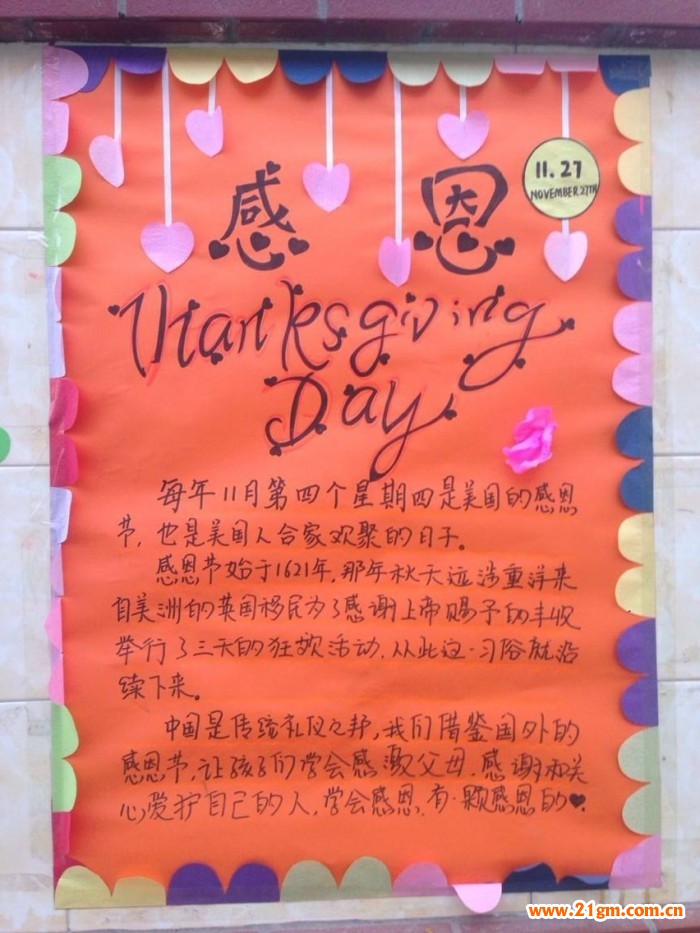 感恩
11.27
NOVEMBER 27TH
Thanksgiving
Day
每年11月第四个星期四是美国的感恩
节,也是美国人合家欢聚的日子。
感恩节始于1621年,那年秋天远涉重洋来
自美洲的英国移民为了感谢上帝赐予的丰收
举行了三天的狂欢活动,从此这一习俗就沿
续下来。
中国是传统礼仪之邦,我们借鉴国外的
感恩节,让孩子们学会感激父母,感谢和关
心爱护自己的人,学会感恩,有一颗感恩的
www.21gm.com.cn